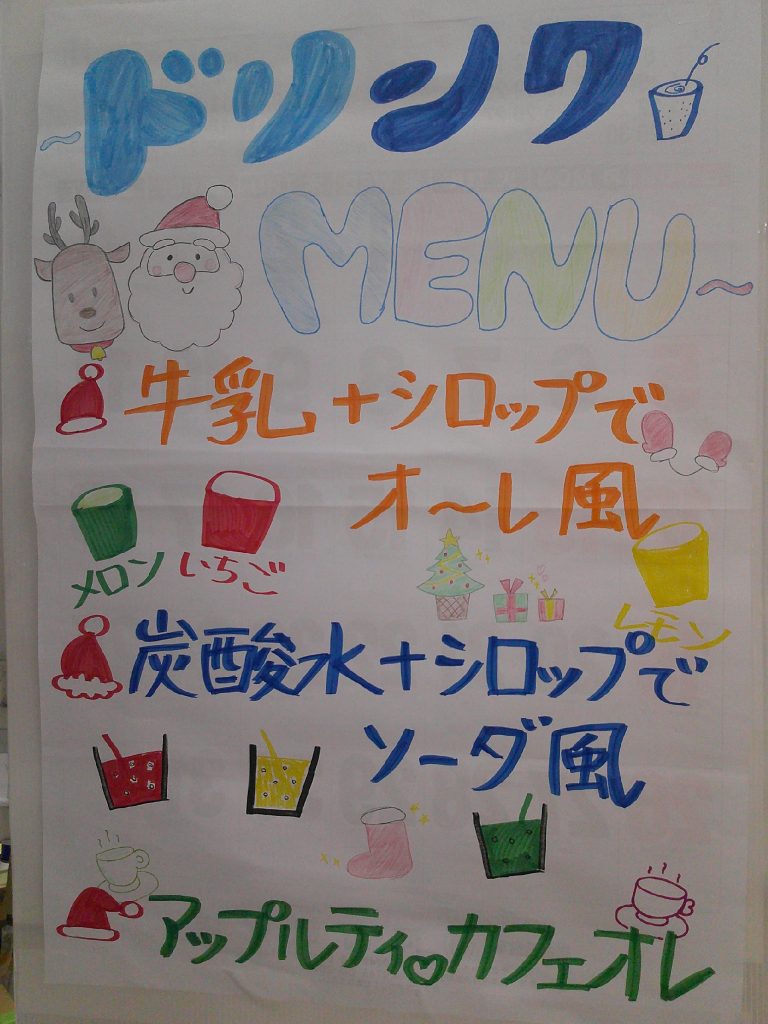 ～ドリンク
MENU～
牛乳+シロップで
オ～レ風
メロン いちご
レモン
炭酸水+シロップで
ソーダ風
アップルティ♡カフェオレ